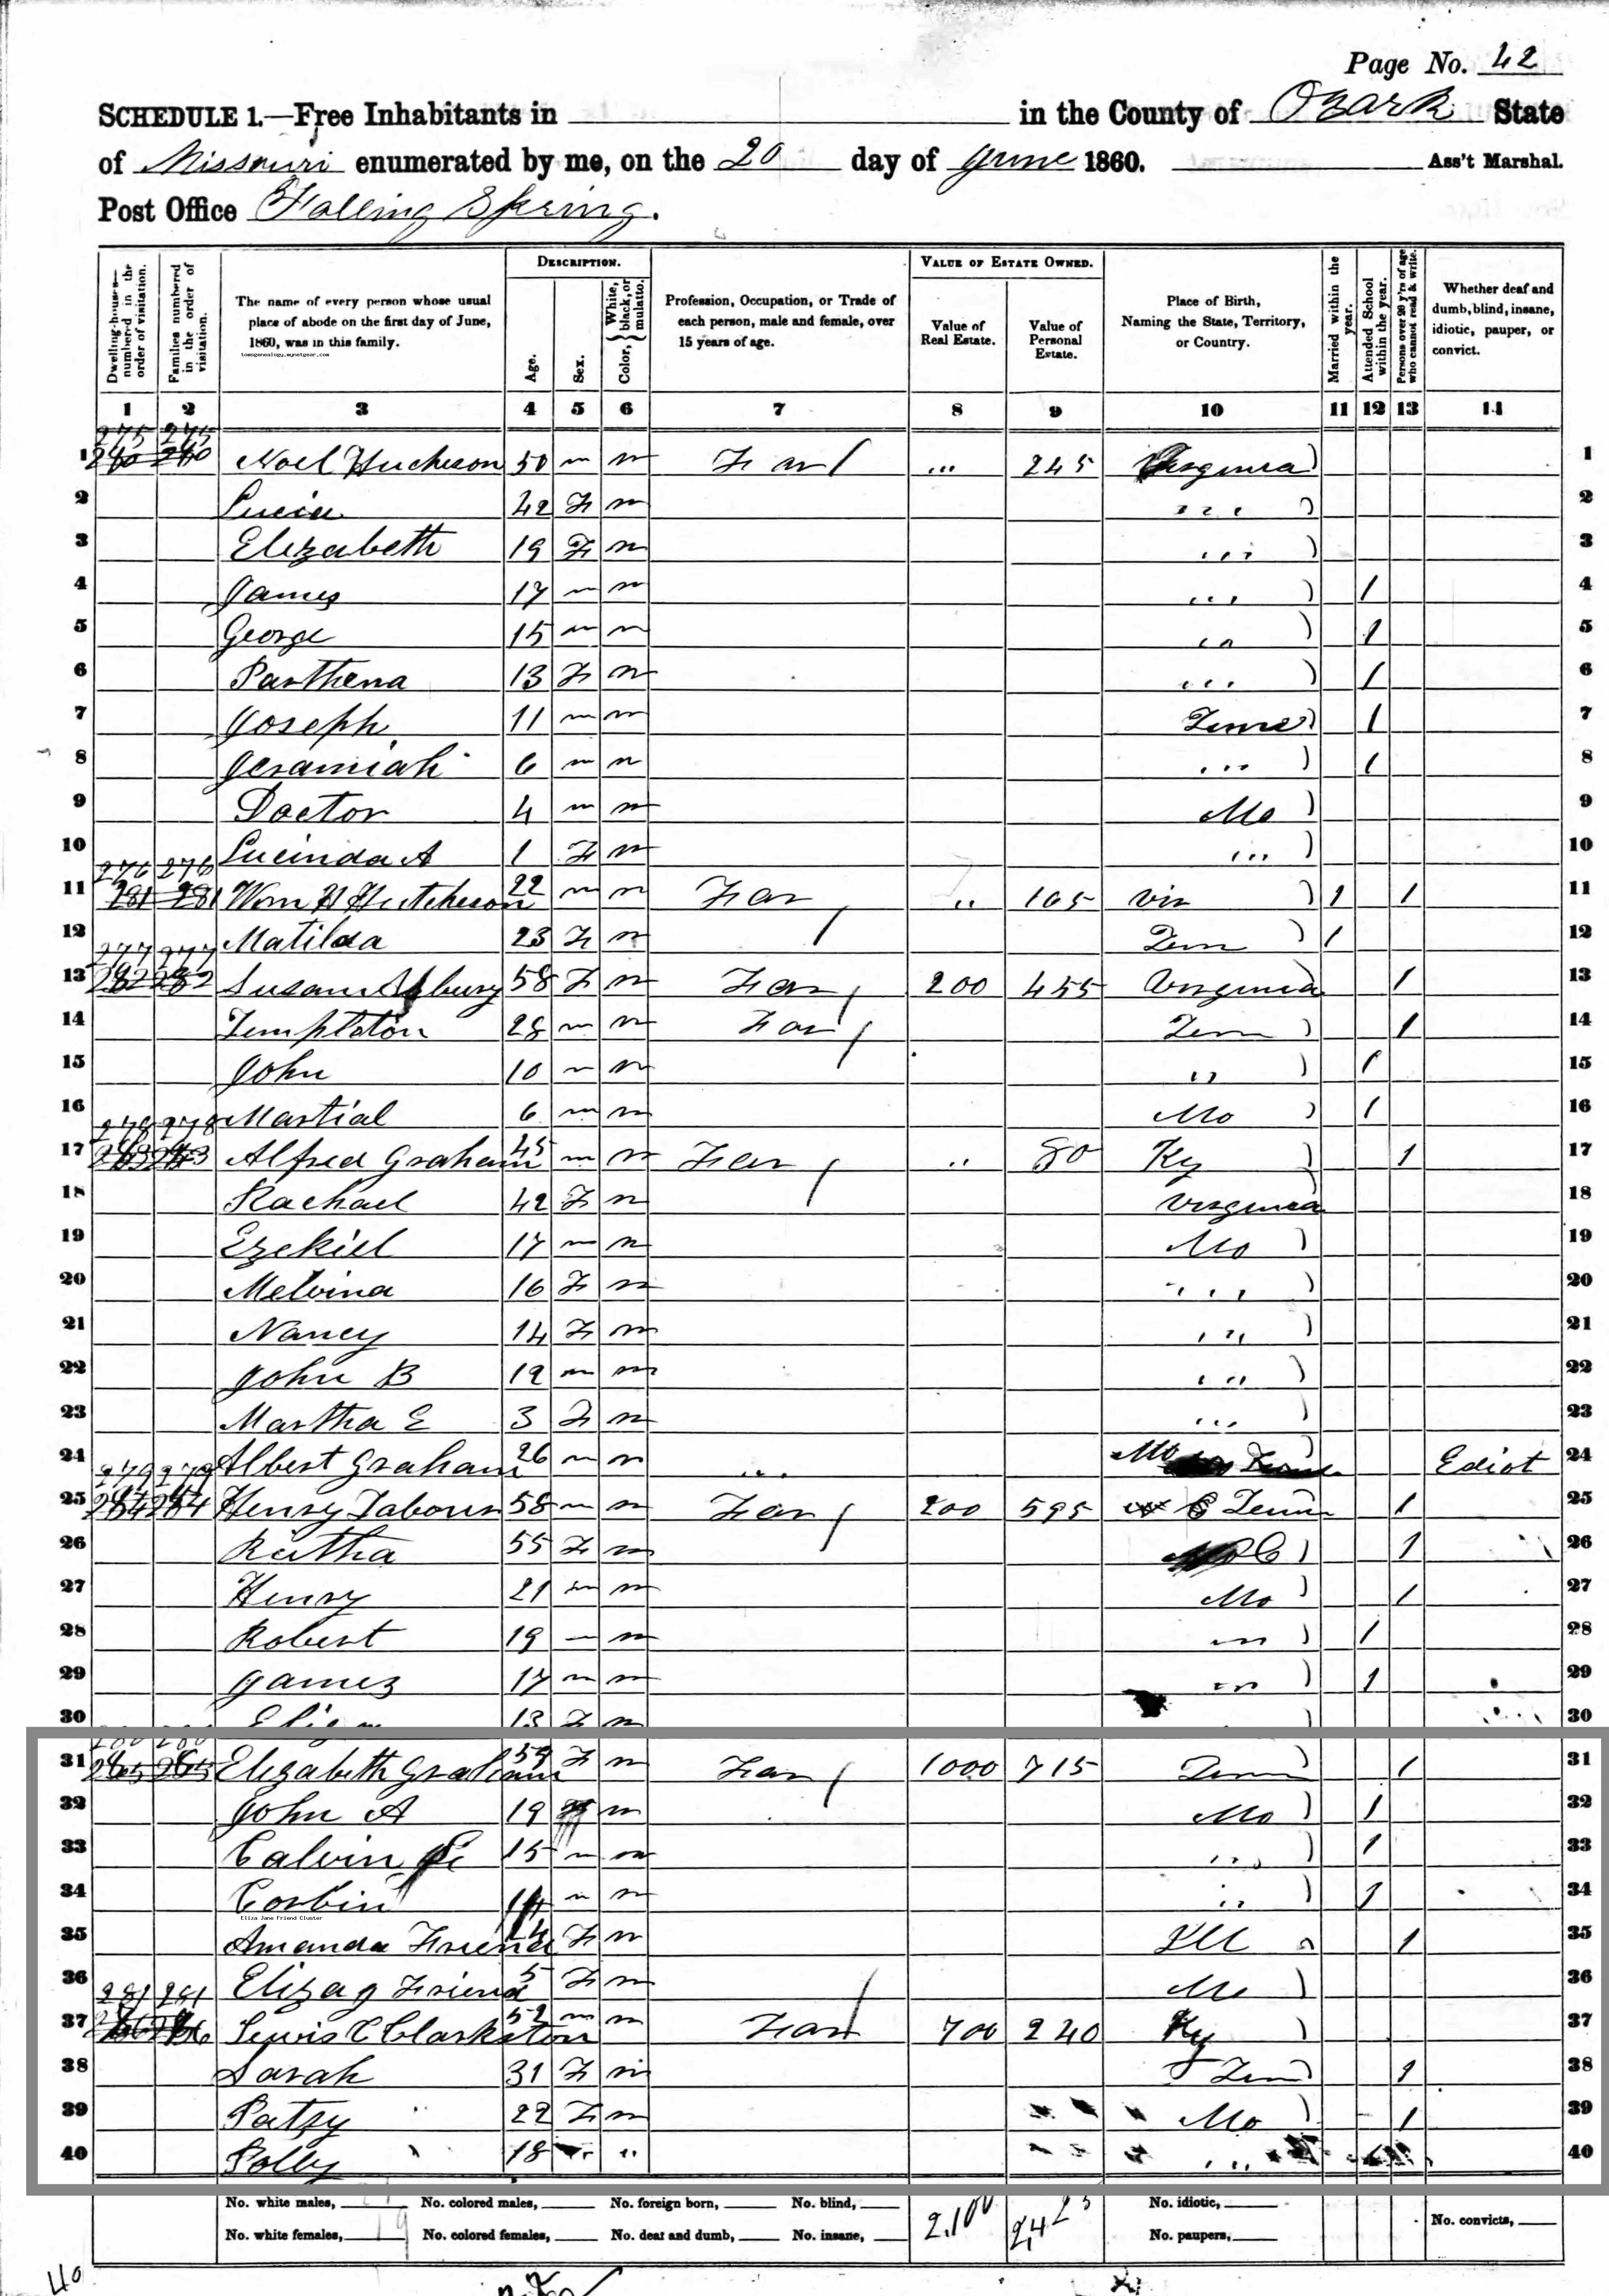 Page No. 42
SCHEDULE 1.—Free Inhabitants in in the County of Ozark State
of Missouri enumerated by me, on the 20 day of June 1860. Ass't Marshal.
Post Office Falling Spring.
Dwelling-houses— numbered in the order of visitation.
Families numbered in the order of visitation.
The name of every person whose usual place of abode on the first day of June, 1860, was in this family.
tomsgenealogy.mynetgear.com
DESCRIPTION.
Age.
Sex.
Color, White, black, or mulatto.
Profession, Occupation, or Trade of each person, male and female, over 15 years of age.
VALUE OF ESTATE OWNED.
Value of Real Estate.
Value of Personal Estate.
Place of Birth, Naming the State, Territory, or Country.
Married within the year.
Attended School within the year.
Persons over 20 y'rs of age who cannot read & write.
Whether deaf and dumb, blind, insane, idiotic, pauper, or convict.
1 2 3 4 5 6 7 8 9 10 11 12 13 14
275 275
1 Noel Hucheson 50 m Far 245 Virginia 1
2 Lucia 42 F 2
3 Elizabeth 19 F 3
4 James 17 m 1 4
5 George 15 m 1 5
6 Parthena 13 F 1 6
7 Joseph 11 m Tenne 1 7
8 Jeramiah 6 m 1 8
9 Doctor 4 m Mo 9
10 Lucinda A 1 F 10
276 276
11 281 281 Wm H Hutcheson 22 m Far 105 Vir 1 1 11
12 Matilda 23 F Tenn 1 12
277 277
13 282 282 Susan Asbury 58 F Far 200 455 Virginia 1 13
14 Templeton 28 m Far Tenn 1 14
15 John 10 m 1 15
16 Martial 6 m Mo 1 16
278 278
17 Alfred Graham 45 m Far 80 Ky 1 17
18 Rachael 42 F Virginia 18
19 Ezekiel 17 m Mo 19
20 Melvina 16 F 20
21 Nancy 14 F 21
22 John B 12 m 22
23 Martha E 3 F 23
24 Albert Graham 26 m Mo Ediot 24
279 279
25 284 284 Henry Tabour 58 m Far 200 595 Tenn 1 25
26 Rutha 55 F 1 26
27 Henry 21 m Mo 1 27
28 Robert 19 1 28
29 James 17 m 1 29
30 13 F 30
280 280
31 285 285 Elizabeth Graham 59 F Far 1000 715 Tenn 1 31
32 John A 19 Mo 1 32
33 Calvin 15 m 1 33
34 Corbin 14 m 1 34
Eliza Jane Friend Cluster
35 Amanda Friend 24 F Ill 1 35
36 Eliza J Friend 5 F Mo 36
281 281
37 Lewis C Clarkston 52 m Far 700 240 Ky 37
38 Sarah 31 F Tenn 1 38
39 Patsy 22 F Mo 1 39
40 Polly 18 40
No. white males, No. colored males, No. foreign born, No. blind, No. idiotic,
No. white females, 19 No. colored females, No. deaf and dumb, No. insane, 2,100 No. paupers, No. convicts,
40